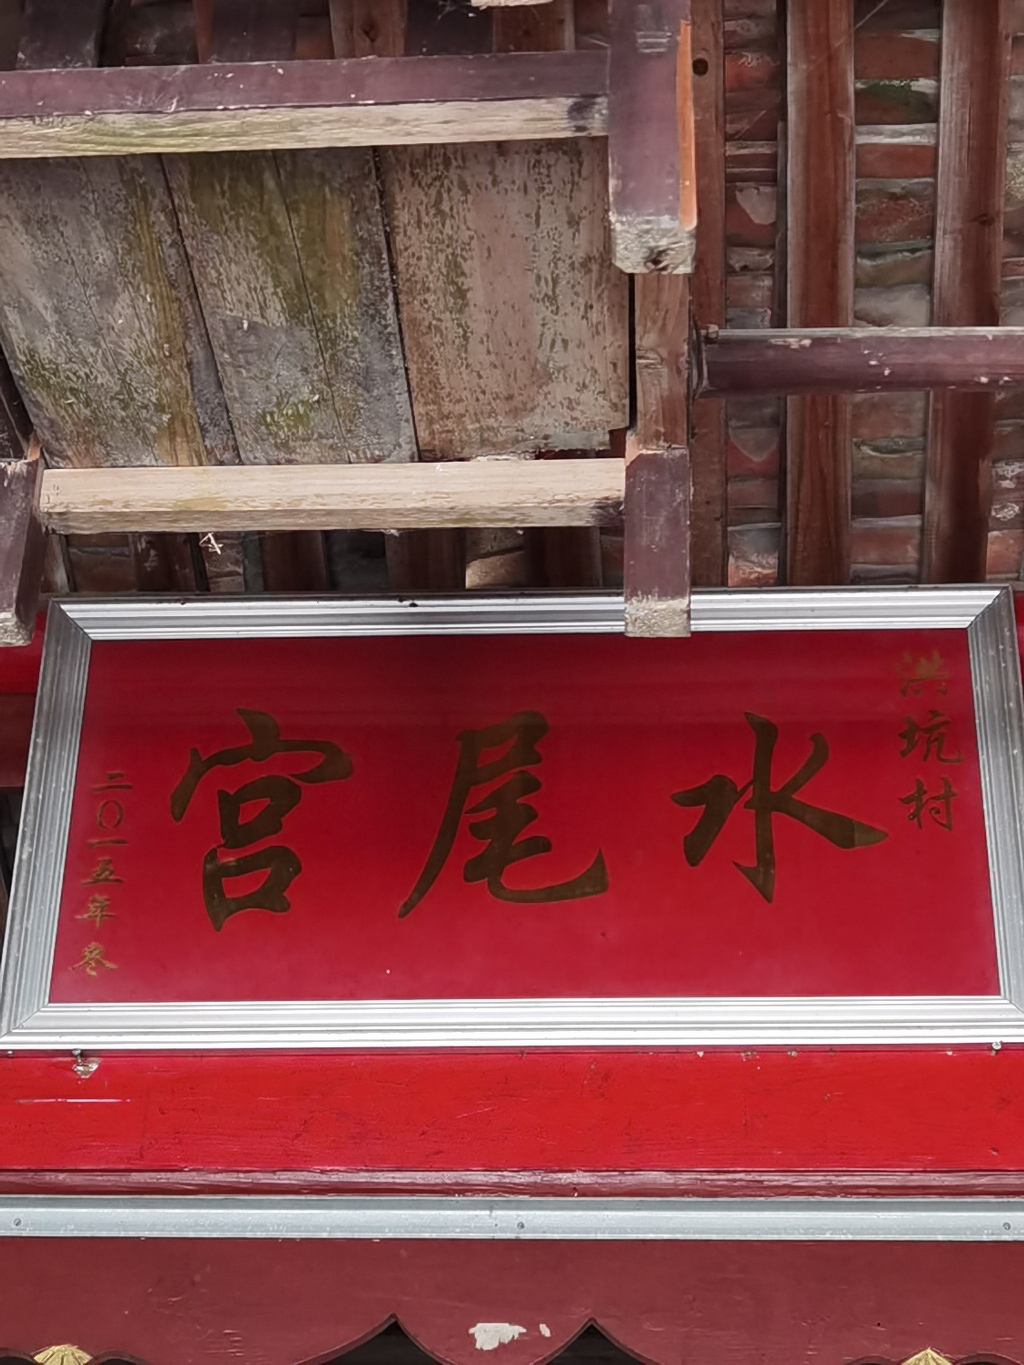 洪坑村
水尾宫
二〇一五年冬